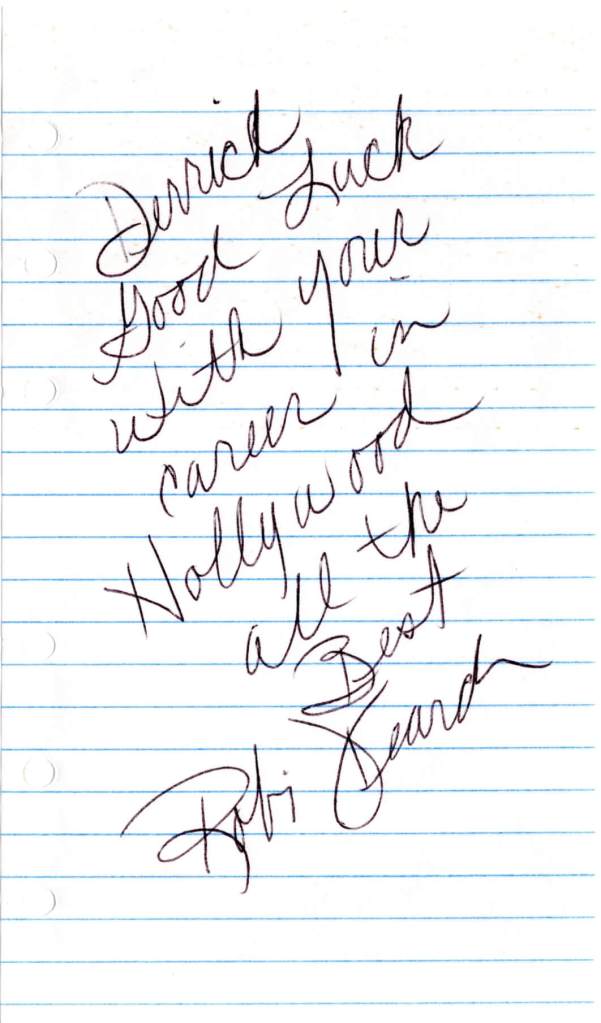 Derrick
Good Luck
with your
career in
Hollywood
all the
Best
Robi